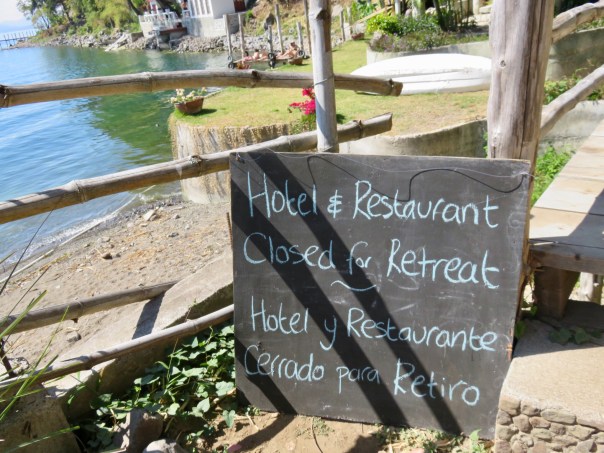 Hotel & Restaurant
Closed for Retreat
Hotel y Restaurante
Cerrado para Retiro